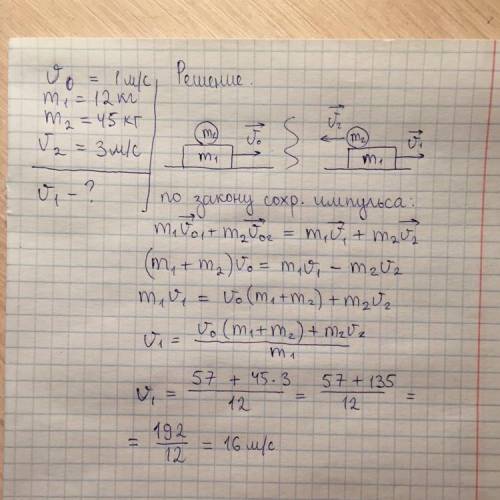 v₀ = 1 м/с
m₁ = 12 кг
m₂ = 45 кг
v₂ = 3 м/с
v₁ - ?
Решение.
m₂ v₀→ m₁
v₂→ m₂ m₁ v₁→
по закону сохр. импульса:
m₁v₀₁→ + m₂v₀₂→ = m₁v₁→ + m₂v₂→
(m₁ + m₂)v₀ = m₁v₁ - m₂v₂
m₁v₁ = v₀(m₁+m₂) + m₂v₂
v₁ = (v₀(m₁+m₂) + m₂v₂)/m₁
v₁ = (57 + 45·3)/12 = (57 + 135)/12 =
= 192/12 = 16 м/с